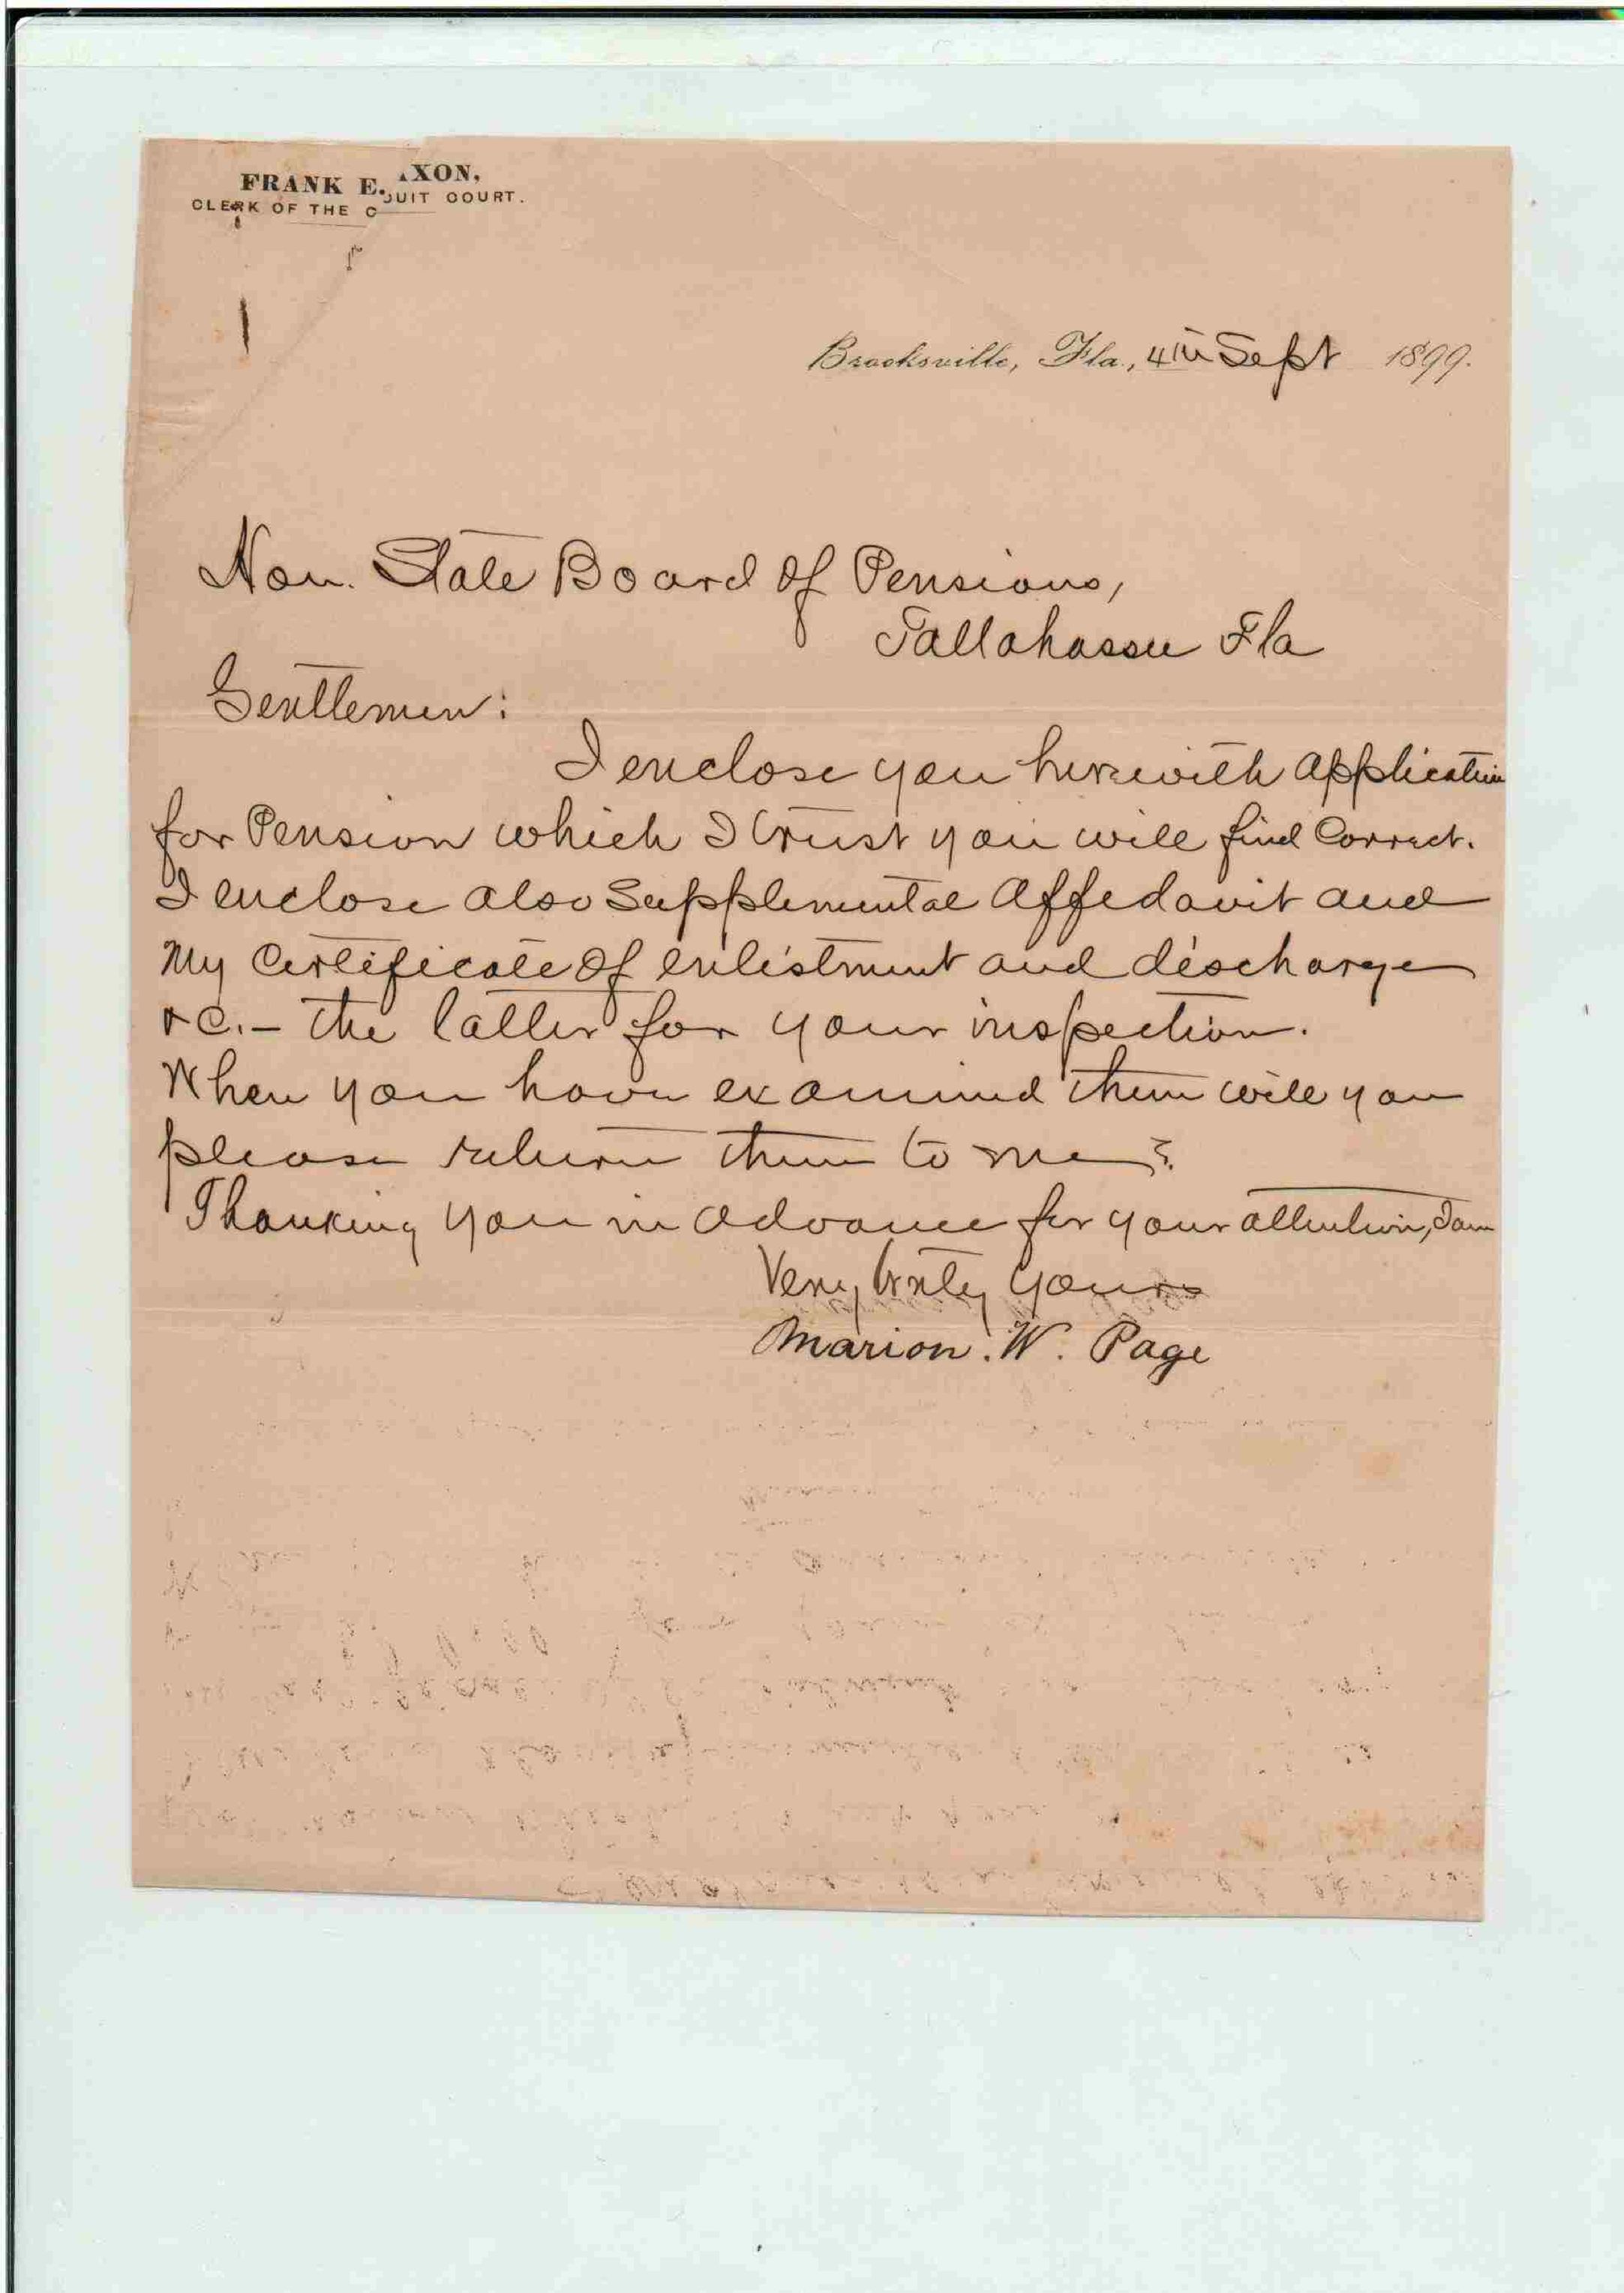 FRANK E. XON,
CLERK OF THE C UIT COURT.
Brooksville, Fla., 4th Sept 1899.
Hon. State Board Of Pensions,
Tallahassee Fla
Gentlemen:
I enclose you herewith application
for Pension which I trust you will find Correct.
I enclose also Supplemental Affedavit and
My Certificate Of enlistment and discharge
&C.- the latter for your inspection.
When you have examined them will you
please return them to me?
Thanking you in advance for your attention, I am
Very truly yours
Marion. W. Page